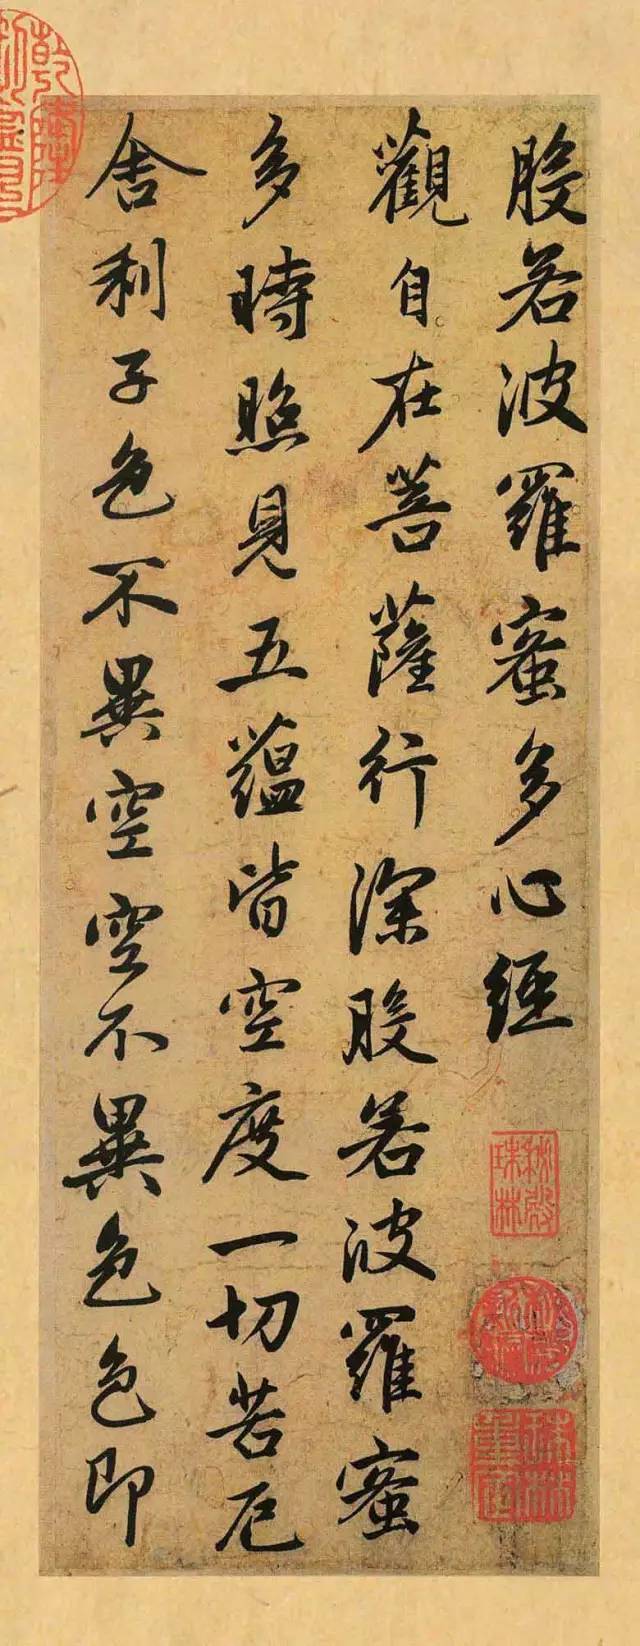 般若波羅蜜多心經
秘殿珠林
秘殿新編
珠林重定
觀自在菩薩行深般若波羅蜜
多時照見五蘊皆空度一切苦厄
舍利子色不異空空不異色色即
乾隆